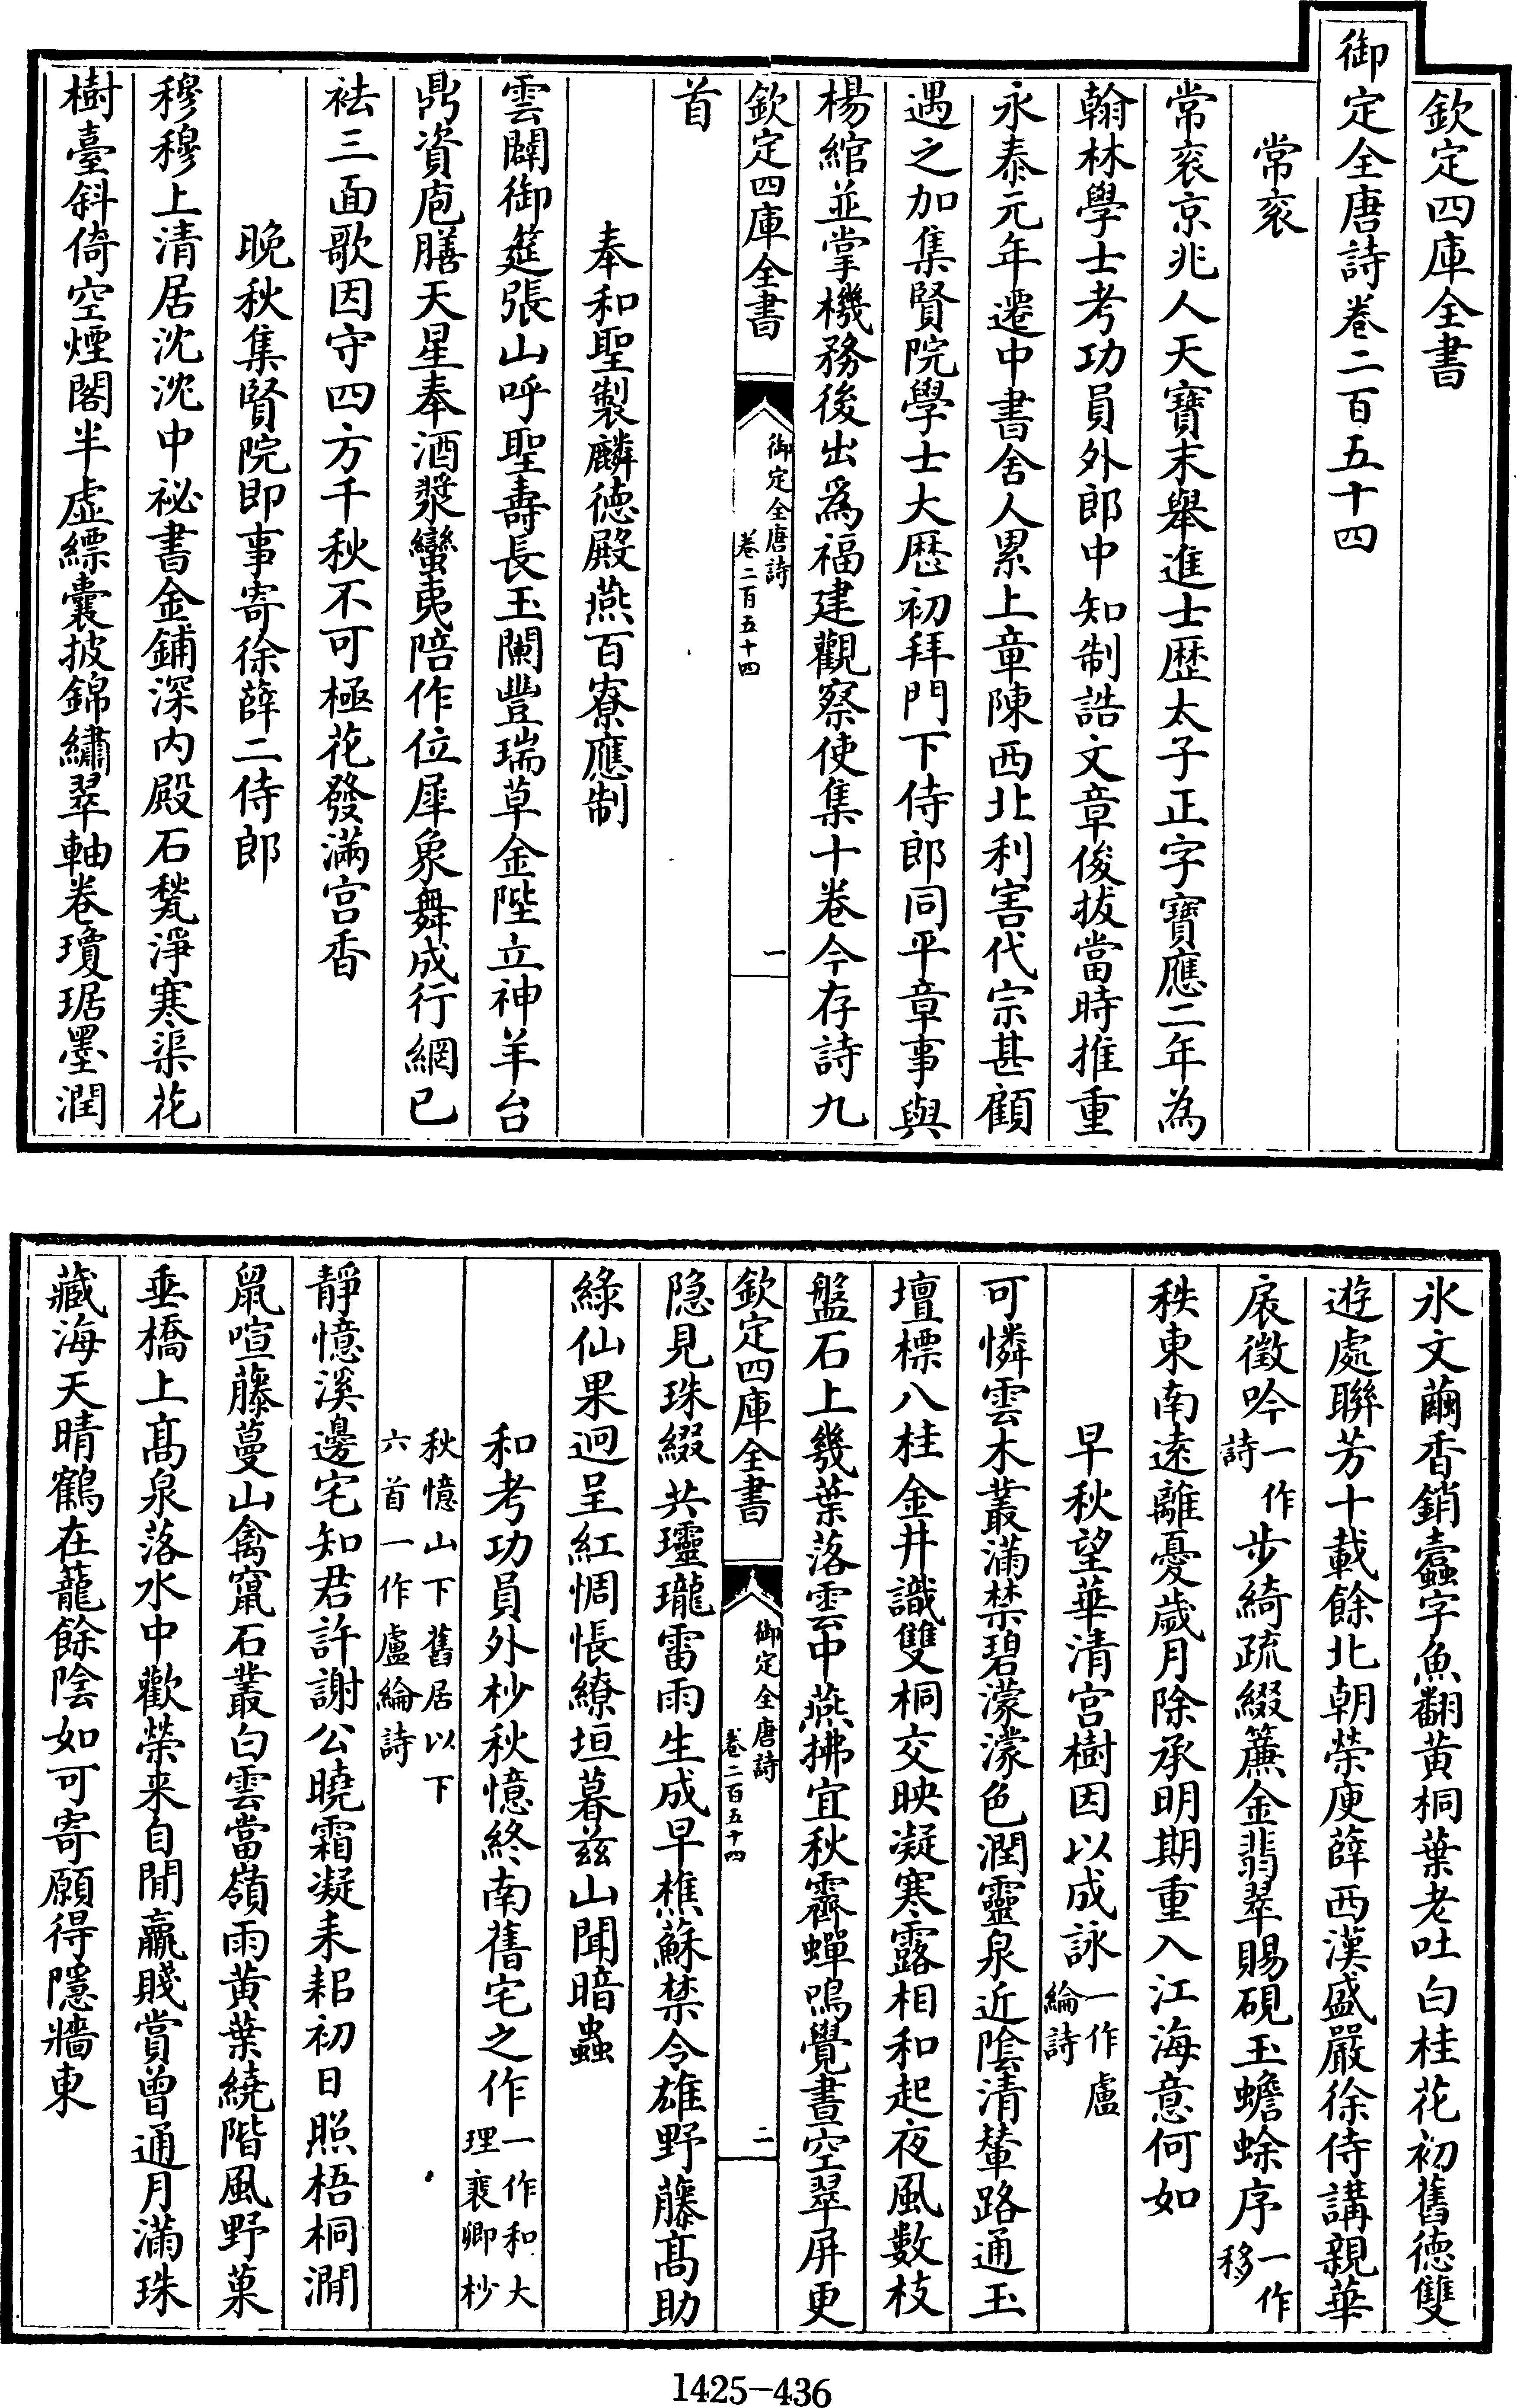 欽定四庫全書
御定全唐詩卷二百五十四
常衮
常衮京兆人天寶末舉進士歴太子正字寶應二年為
翰林學士考功員外郎中知制誥文章俊拔當時推重
永泰元年遷中書舍人累上章陳西北利害代宗甚顧
遇之加集賢院學士大厯初拜門下侍郎同平章事與
楊綰並掌機務後出為福建觀察使集十卷今存詩九
欽定四庫全書
御定全唐詩
卷二百五十四
一
首
奉和聖製麟德殿燕百寮應制
雲闢御筵張山呼聖壽長玉闌豐瑞草金陛立神羊台
鼎資庖膳天星奉酒漿蠻夷陪作位犀象舞成行網已
祛三面歌因守四方千秋不可極花發滿宮香
晚秋集賢院即事寄徐薛二侍郎
穆穆上清居沈沈中祕書金鋪深内殿石甃淨寒渠花
樹臺斜倚空煙閣半虛縹囊披錦繡翠軸卷瓊琚墨潤
氷文繭香銷蠹字魚翻黄桐葉老吐白桂花初舊德雙
遊處聯芳十載餘北朝榮庾薛西漢盛嚴徐侍講親華
扆徵吟一作詩步綺疏綴簾金翡翠賜硯玉蟾蜍序一作移
秩東南遠離憂歲月除承明期重入江海意何如
早秋望華清宮樹因以成詠一作盧綸詩
可憐雲木叢滿禁碧濛濛色潤靈泉近陰清輦路通玉
壇標八桂金井識雙桐交映凝寒露相和起夜風數枝
盤石上幾葉落雲中燕拂宜秋霽蟬鳴覺晝空翠屏更
欽定四庫全書
御定全唐詩
卷二百五十四
二
隱見珠綴共瓏瓏雷雨生成早樵蘇禁令雄野藤髙助
綠仙果迥呈紅惆悵繚垣暮兹山聞暗蟲
和考功員外杪秋憶終南舊宅之作一作和大理裴卿杪
秋憶山下舊居以下六首一作盧綸詩
靜憶溪邊宅知君許謝公曉霜凝耒耜初日照梧桐澗
鼠喧藤蔓山禽竄石叢白雲當嶺雨黄葉繞階風野菓
垂橋上髙泉落水中歡榮来自間羸賤賞曾通月滿珠
藏海天晴鶴在蘢餘陰如可寄願得隱牆東
1425-436